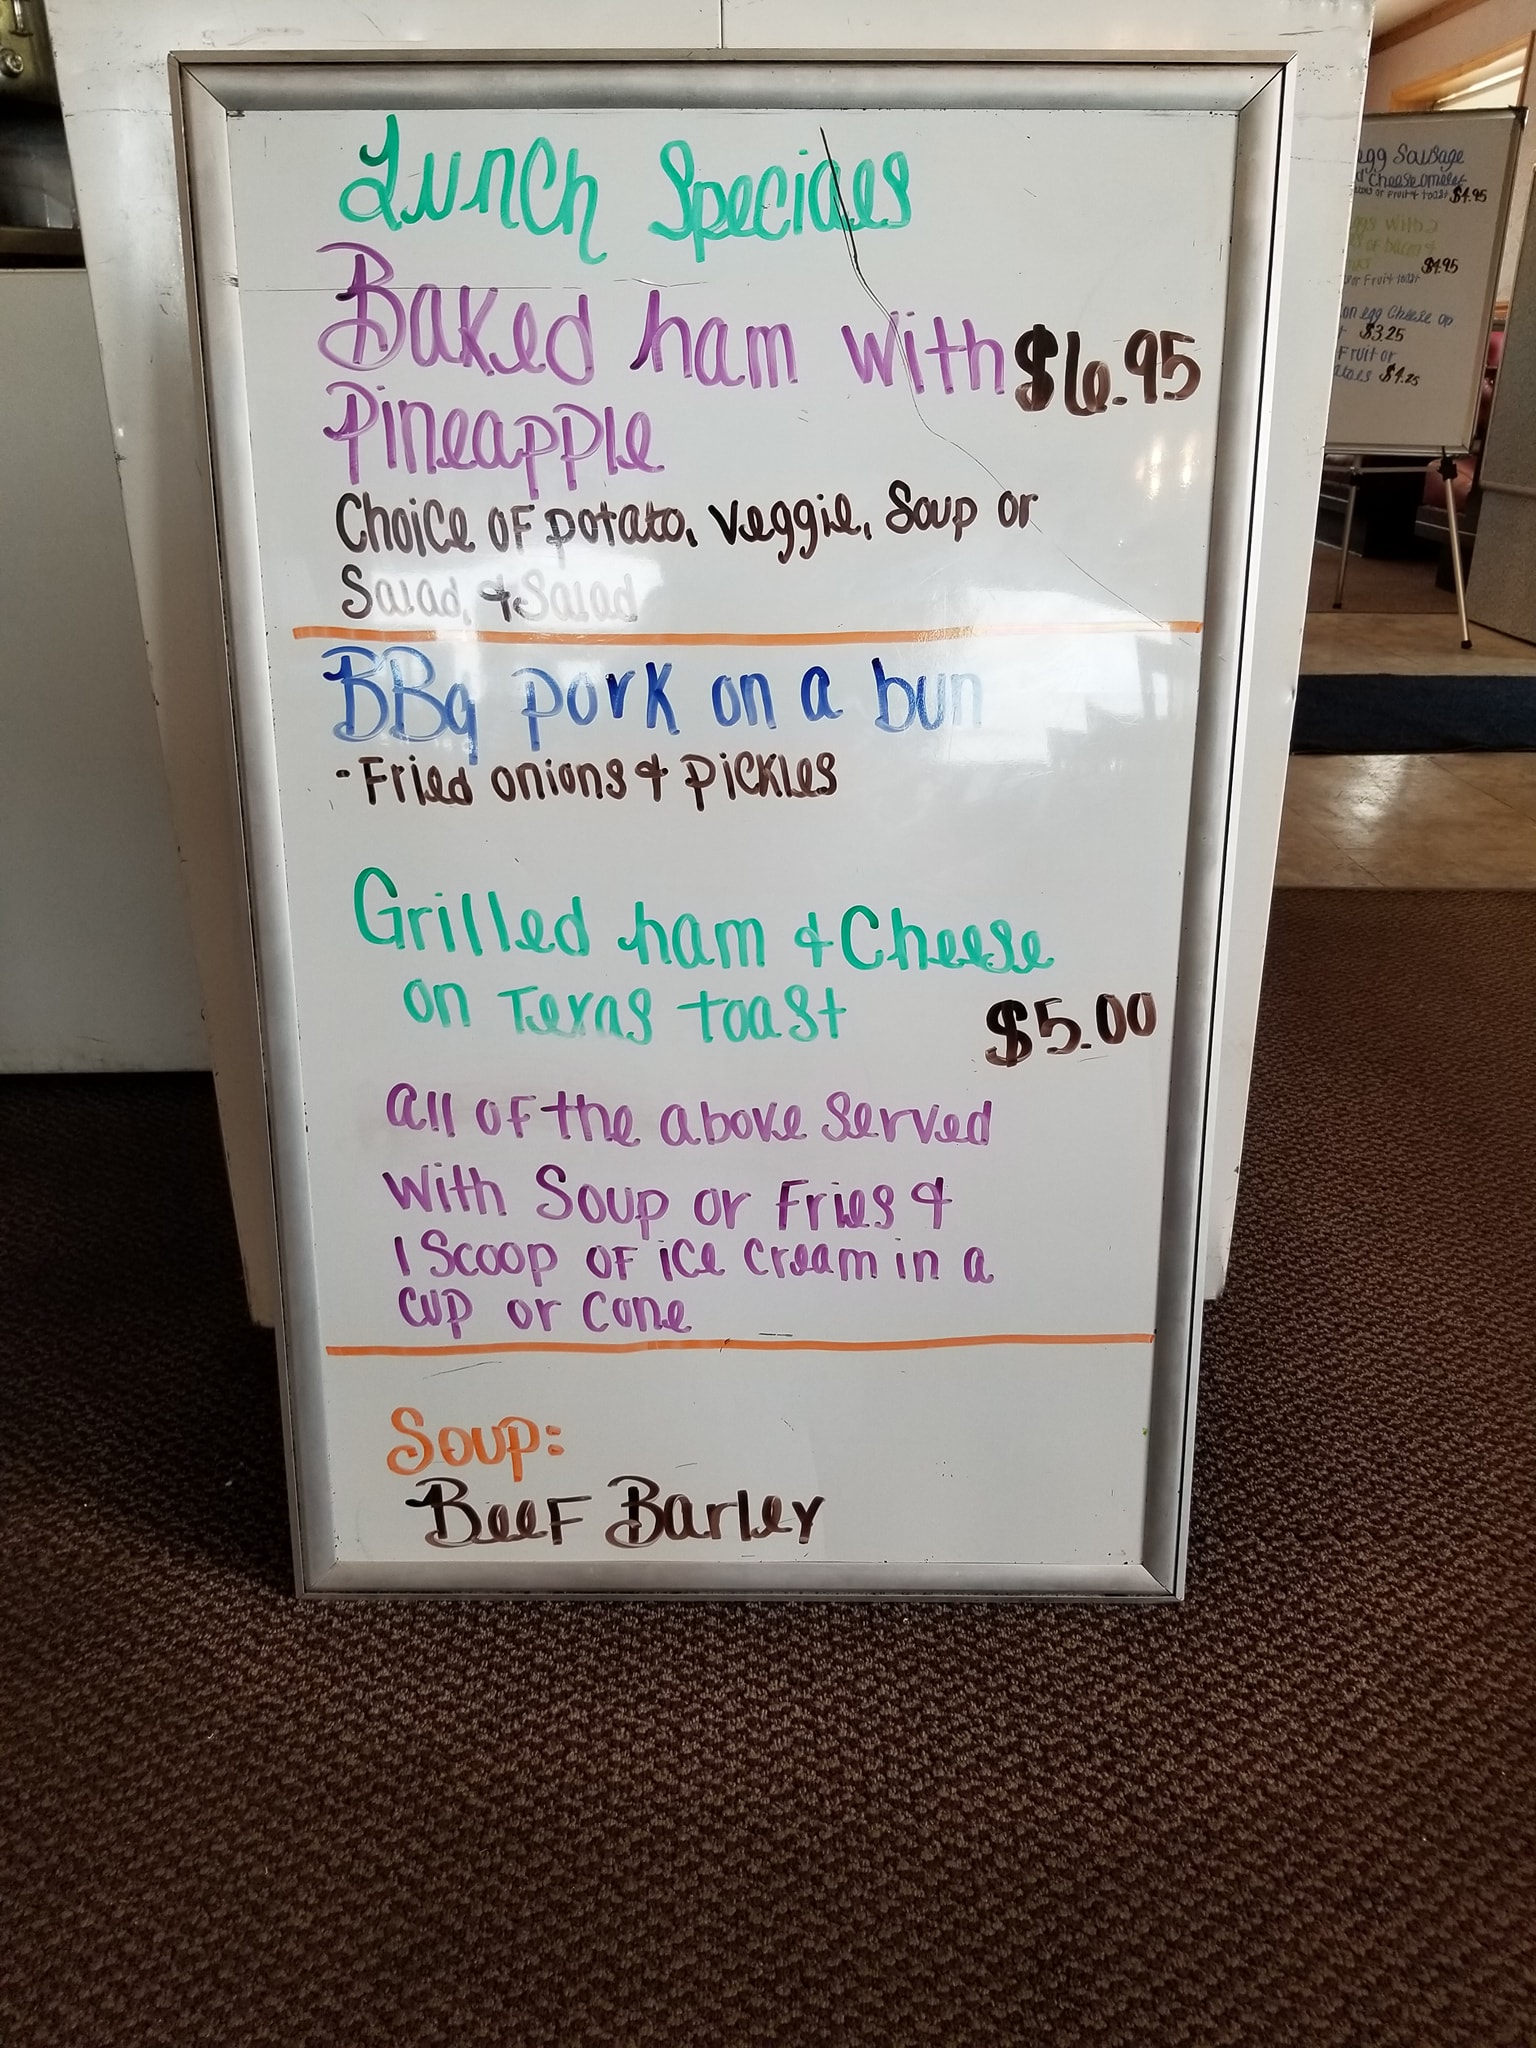 Lunch Specials
Baked ham with $6.95
Pineapple
Choice of potato, veggie, Soup or
Salad, & Salad
BBq pork on a bun
- Fried onions & pickles
Grilled ham & Cheese
on Texas toast $5.00
all of the above served
with Soup or Fries &
1 Scoop of ice cream in a
cup or cone
Soup:
Beef Barley
egg Sausage
Cheese omelet
or Fruit & toast $4.95
with 2
of bacon &
$4.95
or Fruit toast
egg Cheese on
$3.25
Fruit or
$4.25